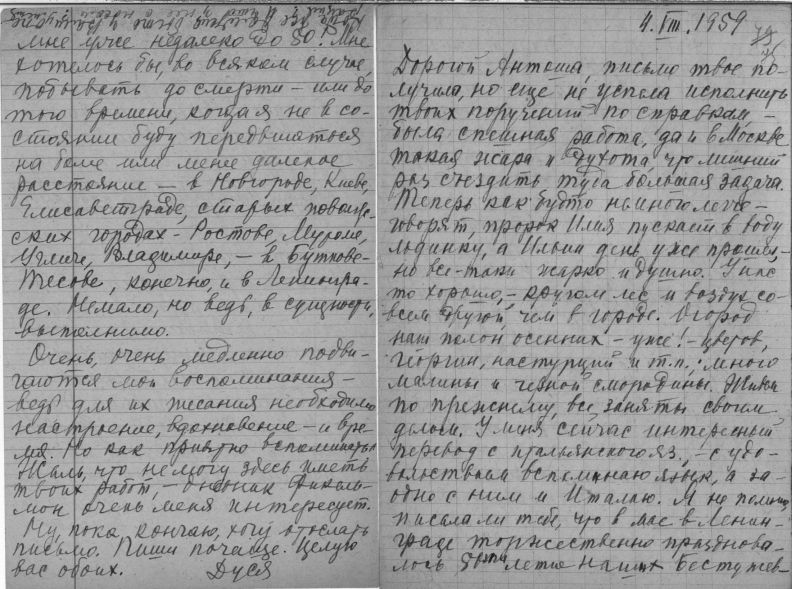 4. VIII. 1959
Дорогой Антоша, письмо твое по-
лучила, но еще не успела исполнить
твоих поручений по справкам —
была спешная работа, да и в Москве
такая жара и духота, что лишний
раз съездить туда большая задача.
Теперь как будто немного легче —
говорят, пророк Илия пускает в воду
льдинку, а Ильин день уже прошел, —
но все-таки жарко и душно. У нас
то хорошо, — кругом лес и воздух со-
всем другой, чем в городе. Огород
наш полон осенних — уже! — цветов,
георгин, настурций и т.п.; много
малины и черной смородины. Живем
по прежнему, все заняты своим
делом. У меня сейчас интересный
перевод с итальянского яз., — с удо-
вольствием вспоминаю язык, а за-
одно с ним и Италию. Я не помню,
писала ли тебе, что в мае в Ленин-
граде торжественно праздноВа-
лось 80-летие наших Бестужев-
мне уже недалеко до 80! Мне
хотелось бы, во всяком случае,
побывать до смерти — или до
того времени, когда я не в со-
стоянии буду передвигаться
на более или менее далекое
расстояние — в Новгороде, Киеве,
Елисаветграде, старых
городах — Ростове, Муроме,
Угличе, Владимире, — в Буткове-
Тесове, конечно, и в Ленингра-
де. Немало, но ведь, в сущности,
выполнимо.
Очень, очень медленно подви-
гаются мои воспоминания —
ведь для их писания необходимо
настроение, вдохновение — и вре-
мя. Но как приятно вспоминать!
Жаль, что не могу здесь иметь
твоих работ, —
очень меня интересует.
Ну, пока кончаю, хочу отослать
письмо. Пиши почаще. Целую
вас обоих. Дуся